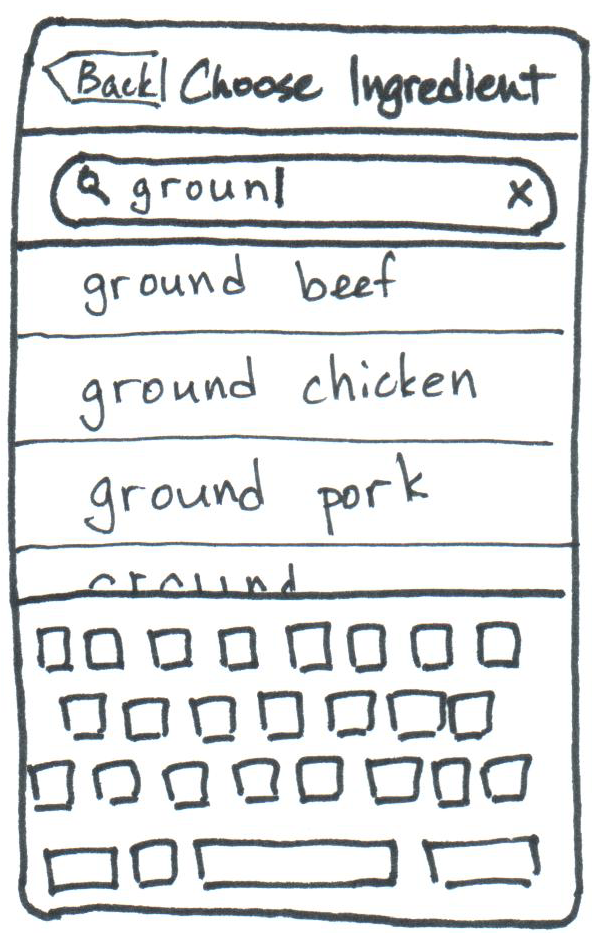 Back Choose Ingredient
groun
x
ground beef
ground chicken
ground pork
ground